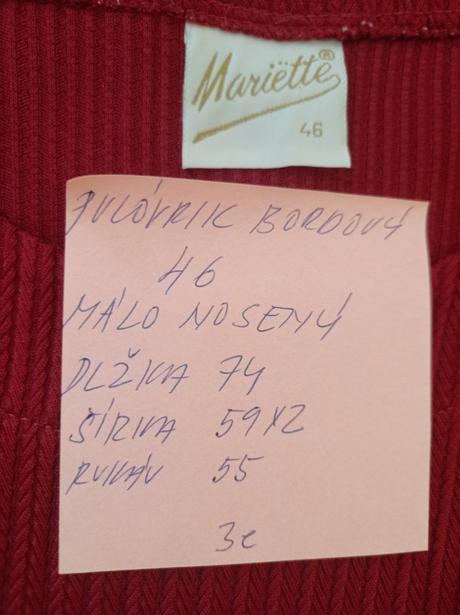 Mariëtte®
46
PULÓVRIK BORDOVÝ
46
MÁLO NOSENÝ
DLŽKA 74
ŠÍRKA 59X2
RUKÁV 55
3e